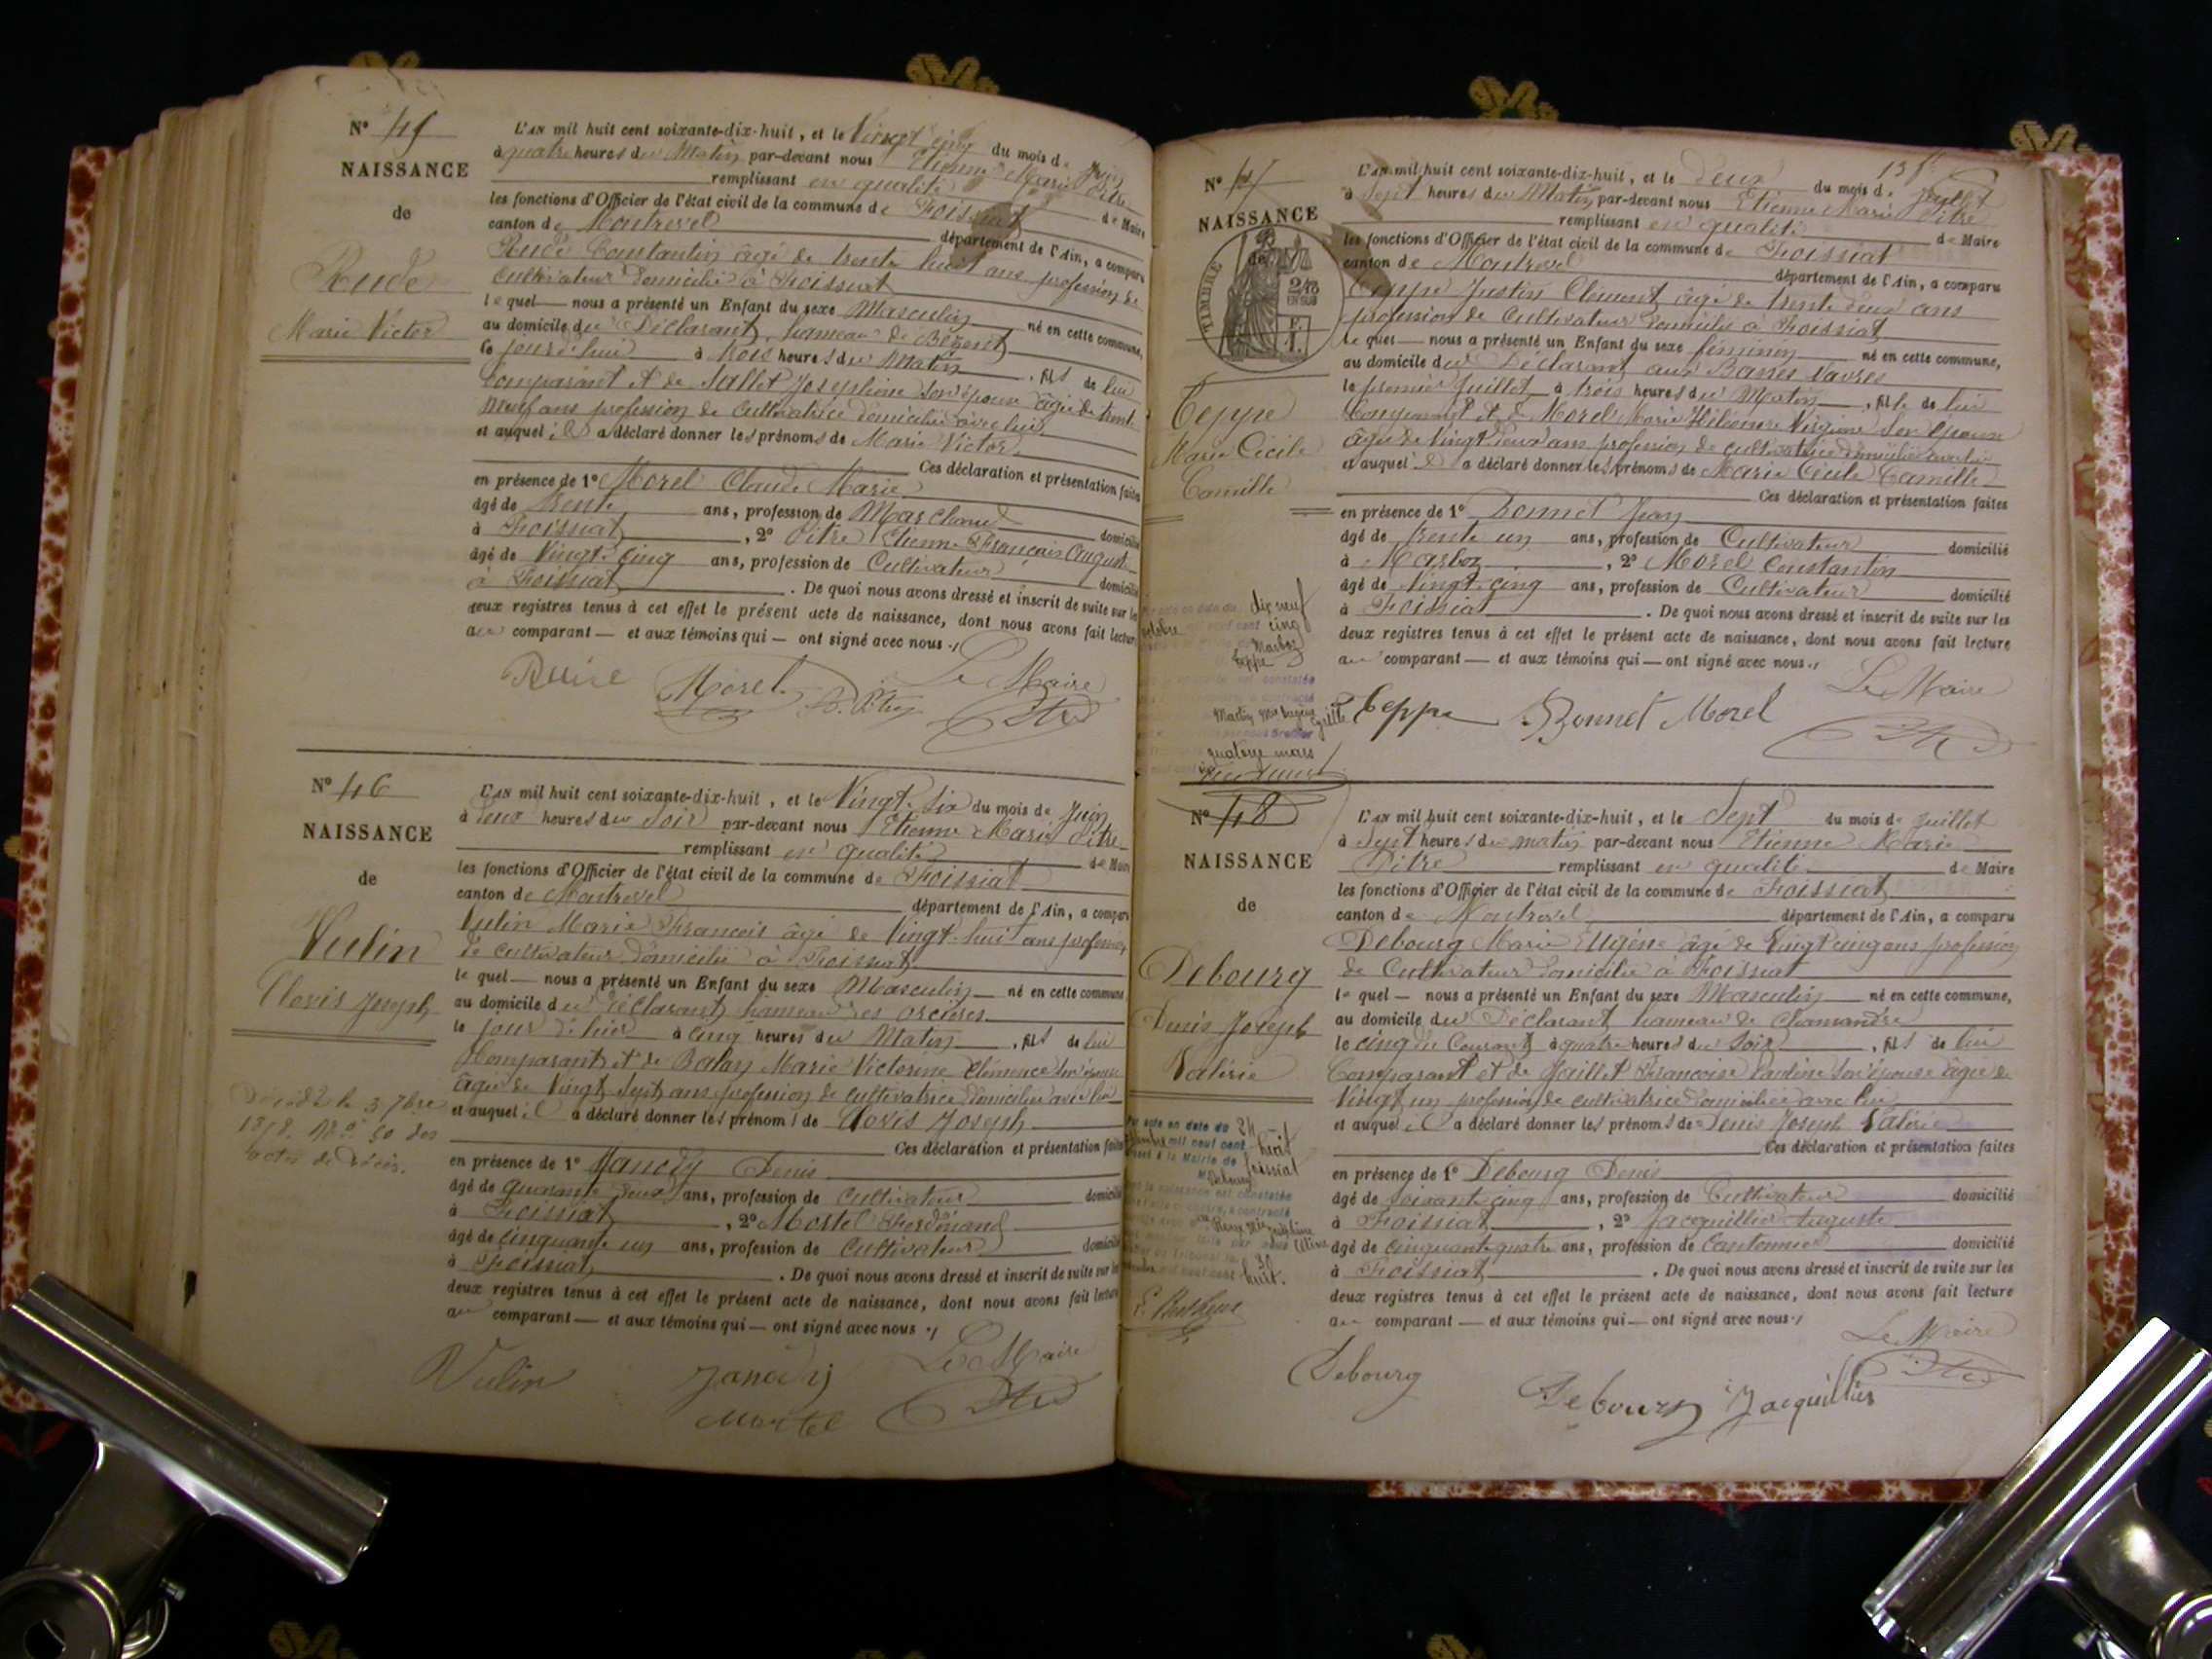 N° 45
NAISSANCE
de
Rude
Marie Victor
L'AN mil huit cent soixante-dix-huit, et le Vingt cinq du mois de Juin
à quatre heures du Matin par-devant nous Etienne Marie Pitre
remplissant en qualité de Maire
les fonctions d'Officier de l'état civil de la commune de Foissiat
canton de Montrevel département de l'Ain, a comparu
Rude Constantin âgé de trente huit ans profession de
Cultivateur domicilié à Foissiat
lequel — nous a présenté un Enfant du sexe Masculin né en cette commune,
au domicile du Déclarant, hameau de
le jourd'hui à trois heures du Matin, fils de lui
Comparant et de Sallet Josephine son épouse âgée de trente
neuf ans profession de Cultivatrice domiciliée avec lui
et auquel il a déclaré donner les prénoms de Marie Victor
Ces déclaration et présentation faites
en présence de 1° Morel Claude Marie
âgé de trente ans, profession de Marchand domicilié
à Foissiat, 2° Pitre Etienne François Auguste
âgé de Vingt-cinq ans, profession de Cultivateur domicilié
à Foissiat. De quoi nous avons dressé et inscrit de suite sur les
deux registres tenus à cet effet le présent acte de naissance, dont nous avons fait lecture
au comparant — et aux témoins qui — ont signé avec nous.
Rude Morel Le Maire
Pitre
N° 46
NAISSANCE
de
Vulin
Clovis Joseph
Décédé le 3 7bre
1878. N° 50 des
actes de décès.
L'AN mil huit cent soixante-dix-huit, et le Vingt-Six du mois de Juin
à deux heures du Soir par-devant nous Etienne Marie Pitre
remplissant en qualité de Maire
les fonctions d'Officier de l'état civil de la commune de Foissiat
canton de Montrevel département de l'Ain, a comparu
Vulin Marie François âgé de Vingt-huit ans profession
de cultivateur domicilié à Foissiat
lequel — nous a présenté un Enfant du sexe Masculin né en cette commune
au domicile du déclarant, hameau des Orcières
le jour d'hier à cinq heures du Matin, fils de lui
Comparant et de Balay Marie Victorine Clémence son épouse
âgée de Vingt Sept ans profession de cultivatrice domiciliée avec lui
et auquel il a déclaré donner les prénoms de Clovis Joseph
Ces déclaration et présentation faites
en présence de 1° Janody Denis
âgé de quarante deux ans, profession de Cultivateur domicilié
à Foissiat, 2° Mortel Ferdinand
âgé de cinquante un ans, profession de Cultivateur domicilié
à Foissiat. De quoi nous avons dressé et inscrit de suite sur les
deux registres tenus à cet effet le présent acte de naissance, dont nous avons fait lecture
au comparant — et aux témoins qui — ont signé avec nous.
Vulin Janody Le Maire
Mortel Pitre
N° 47
NAISSANCE
de
TIMBRE
Teppe
Marie Cécile
Camille
dix neuf
octobre cinq
Marboz
Teppe
quatorze mars
L'AN mil huit cent soixante-dix-huit, et le deux du mois de Juillet
à Sept heures du Matin par-devant nous Etienne Marie Pitre
remplissant en qualité de Maire
les fonctions d'Officier de l'état civil de la commune de Foissiat
canton de Montrevel département de l'Ain, a comparu
Teppe Justin Clément âgé de trente deux ans
profession de Cultivateur domicilié à Foissiat
lequel — nous a présenté un Enfant du sexe féminin né en cette commune,
au domicile du Déclarant aux Basses Vavres
le premier Juillet à trois heures du Matin, fille de lui
Comparant et de Morel Marie Virginie son épouse
âgée de Vingt deux ans profession de cultivatrice domiciliée avec lui
et auquel il a déclaré donner les prénoms de Marie Cécile Camille
Ces déclaration et présentation faites
en présence de 1° Bonnet Jean
âgé de trente un ans, profession de Cultivateur domicilié
à Marboz, 2° Morel Constantin
âgé de Vingt-cinq ans, profession de Cultivateur domicilié
à Foissiat. De quoi nous avons dressé et inscrit de suite sur les
deux registres tenus à cet effet le présent acte de naissance, dont nous avons fait lecture
au comparant — et aux témoins qui — ont signé avec nous.
Teppe Bonnet Morel Le Maire
Pitre
N° 48
NAISSANCE
de
Debourg
Denis Joseph
Valérie
Par acte en date du 24
mil neuf cent huit
à la Mairie de Foissiat
Debourg
huit.
L'AN mil huit cent soixante-dix-huit, et le Sept du mois de Juillet
à Sept heures du matin par-devant nous Etienne Marie
Pitre remplissant en qualité de Maire
les fonctions d'Officier de l'état civil de la commune de Foissiat
canton de Montrevel département de l'Ain, a comparu
Debourg Marie Eugène âgé de Vingt cinq ans profession
de Cultivateur domicilié à Foissiat
lequel — nous a présenté un Enfant du sexe Masculin né en cette commune,
au domicile du Déclarant hameau de Chamandre
le cinq du Courant à quatre heures du Soir, fils de lui
Comparant et de Jaillet Françoise Pauline son épouse âgée de
Vingt un profession de cultivatrice domiciliée avec lui
et auquel il a déclaré donner les prénoms de Denis Joseph Valérie
Ces déclaration et présentation faites
en présence de 1° Debourg Denis
âgé de Soixante cinq ans, profession de Cultivateur domicilié
à Foissiat, 2° Jacquillier Auguste
âgé de cinquante quatre ans, profession de Cantonnier domicilié
à Foissiat. De quoi nous avons dressé et inscrit de suite sur les
deux registres tenus à cet effet le présent acte de naissance, dont nous avons fait lecture
au comparant — et aux témoins qui — ont signé avec nous.
Debourg Debourg Jacquillier Le Maire
Pitre